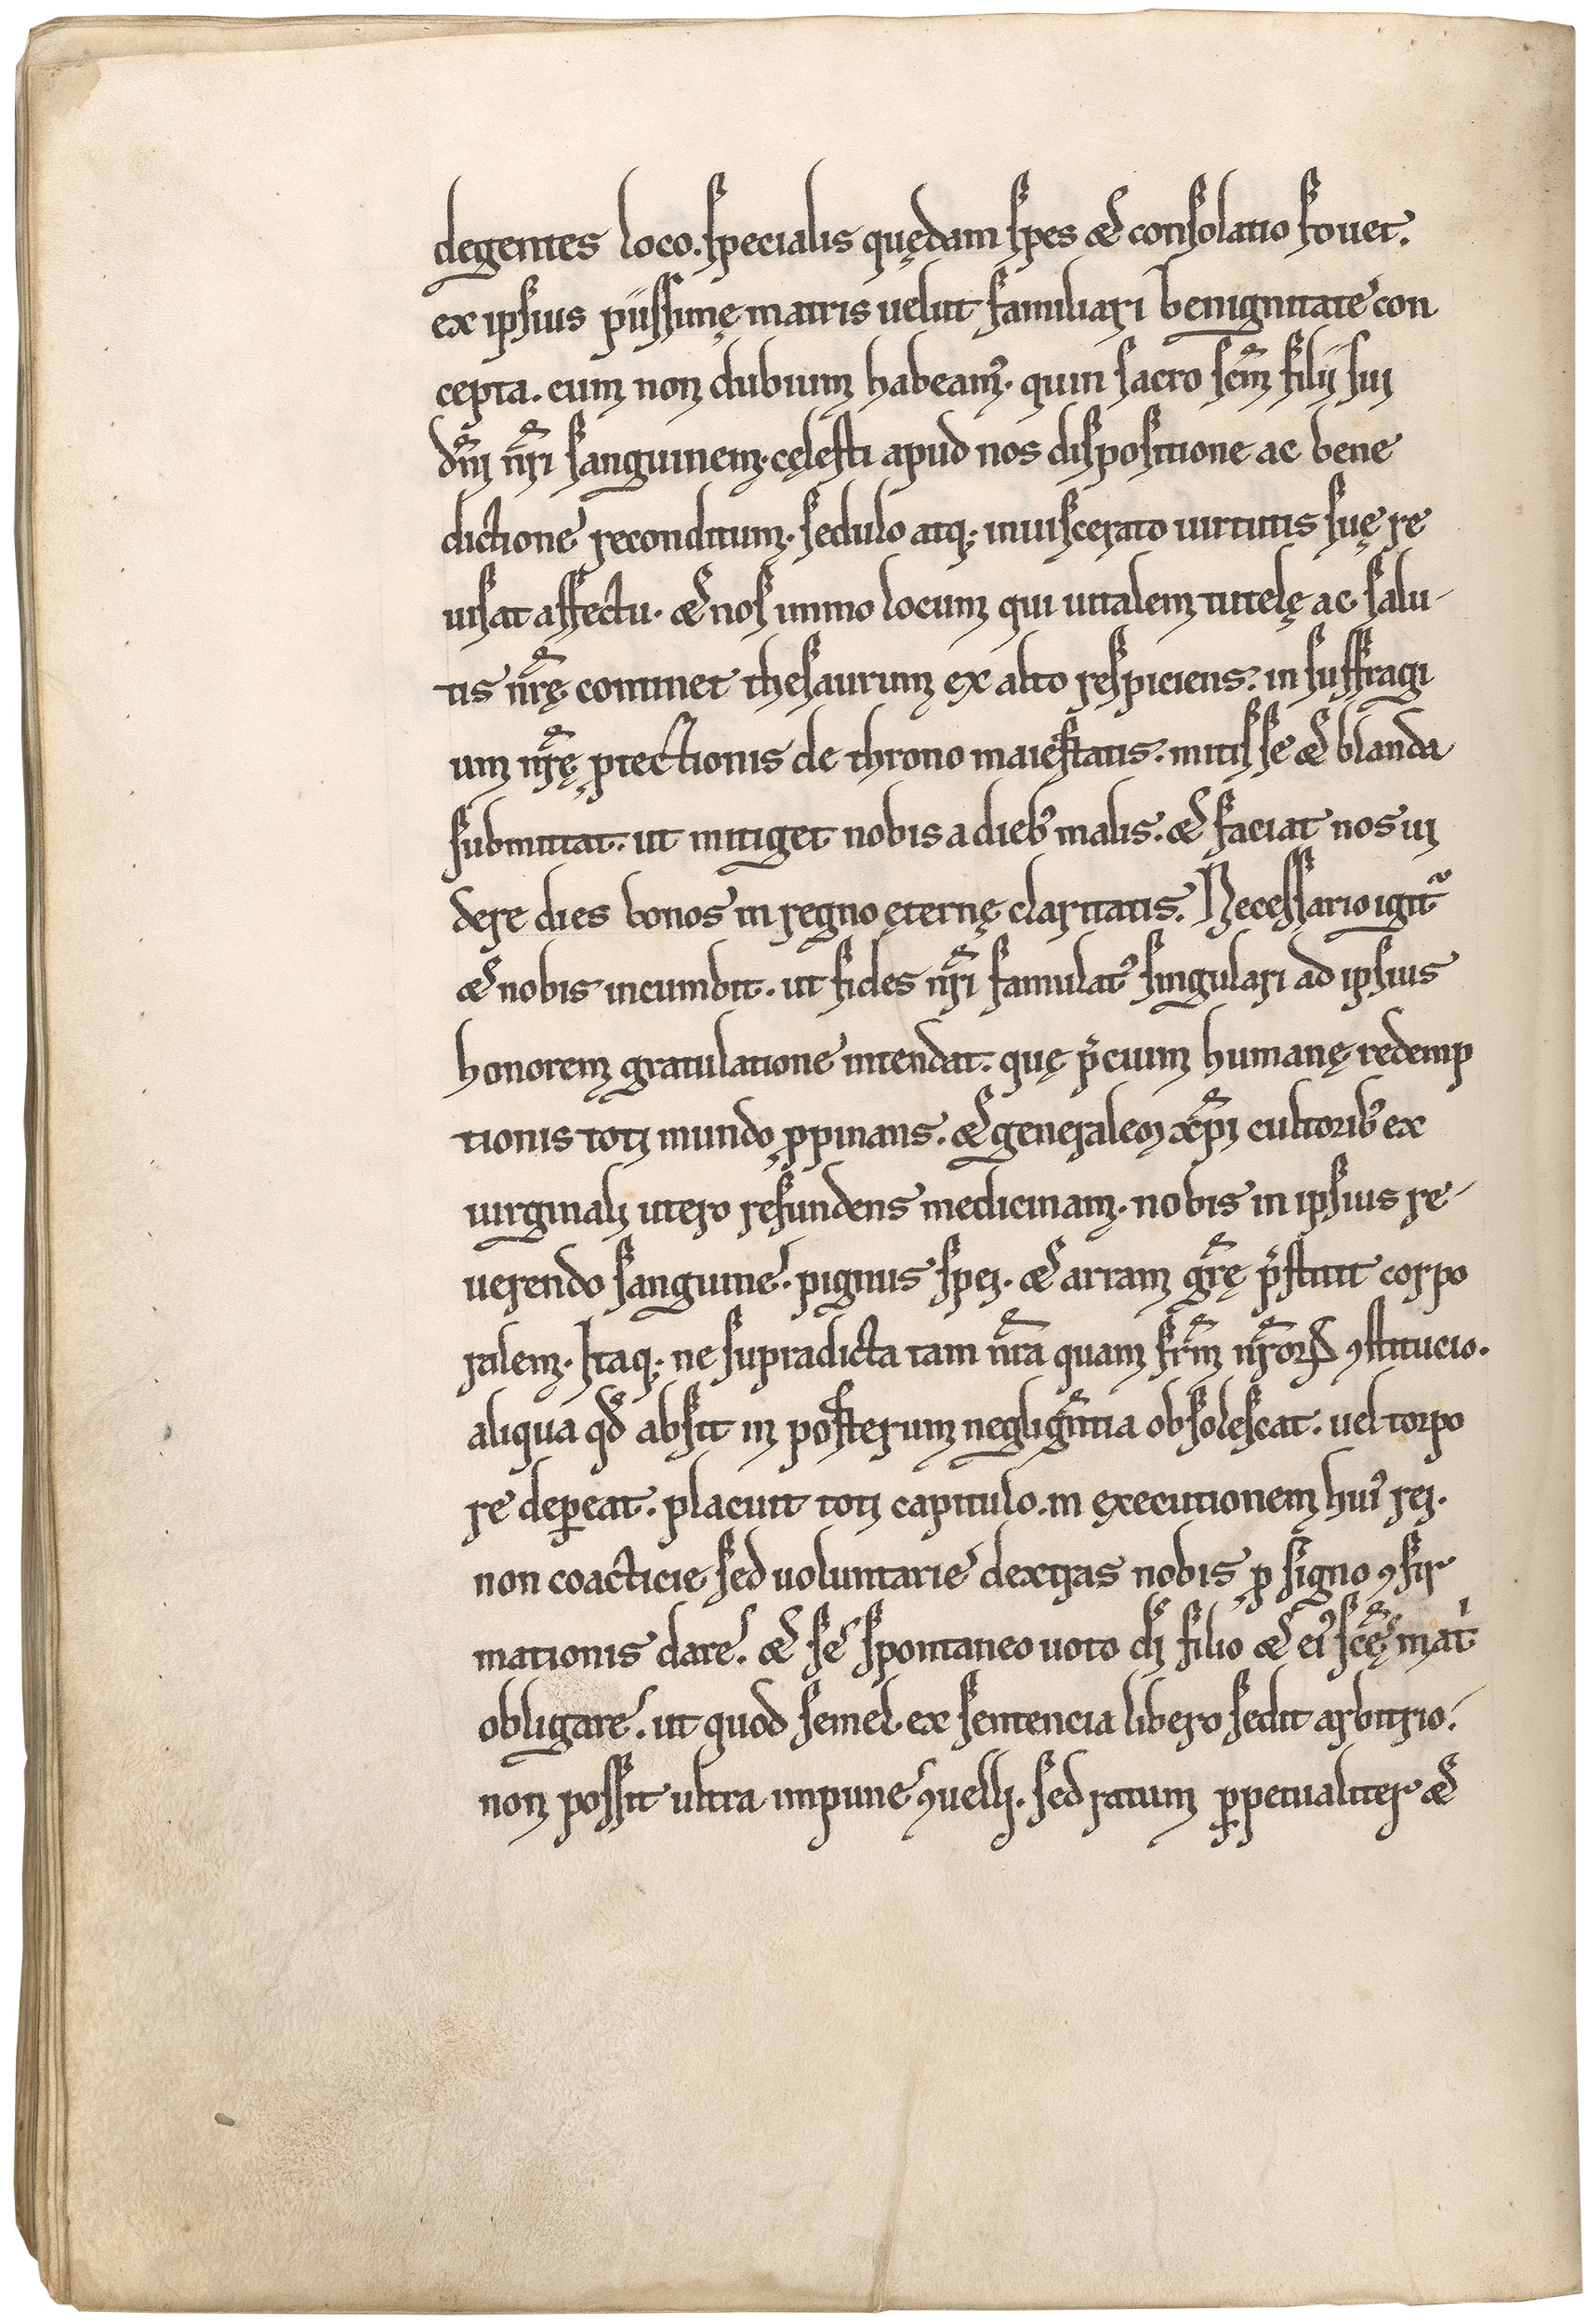 degentes loco. specialis quędam spes & consolatio fouet.
ex ipsius piissimę matris uelut familiari benignitate con
cepta. cum non dubium habeam᾿. quin sacro sc̄m filii sui
dn̄i nr̄i sanguinem. cęlesti apud nos dispositione ac bene
dictione reconditum. sedulo atq; inuiscerato uirtutis suę re
uisat affectu. & nos immo locum qui uitalem tutelę ac salu-
tis nr̄ę continet thesaurum ex alto respiciens. in suffragi
um nr̄ę ꝓtectionis de throno maiestatis. mitis se & blanda
submittat. ut mitiget nobis a dieb᾿ malis. & faciat nos ui
dere dies bonos in regno ęternę claritatis. Necessario igit᷑
& nobis incumbit. ut fides nr̄i famulat᾿ singulari ad ipsius
honorem gratulatione intendat. quę p̄cium humanę redemp
tionis toti mundo ꝓpinans. & generalem xp̄i cultorib᾿ ex
uirginali utero refundens medicinam. nobis in ipsius re-
uerendo sanguine. pignus spei. & arram gr̄ę p̄stitit corpo
ralem. Itaq; ne supradicta tam nr̄a quam fr̄m nr̄oꝝ ꝯstitucio.
aliqua qd̄ absit in posterum negliḡntia obsolescat. uel torpo
re deꝑeat. placuit toti capitulo. in exęcutionem hui᾿ rei.
non coacticie sed uoluntarie dextras nobis ꝓ signo ꝯfir
mationis dare. & se spontaneo uoto dī filio & ei᾿ sc̄ę matͥ
obligare. ut quod semel ex sentencia libero sedit arbitrio.
non possit ultra impune ꝯuelli. sed ratum ꝑpetualiter &